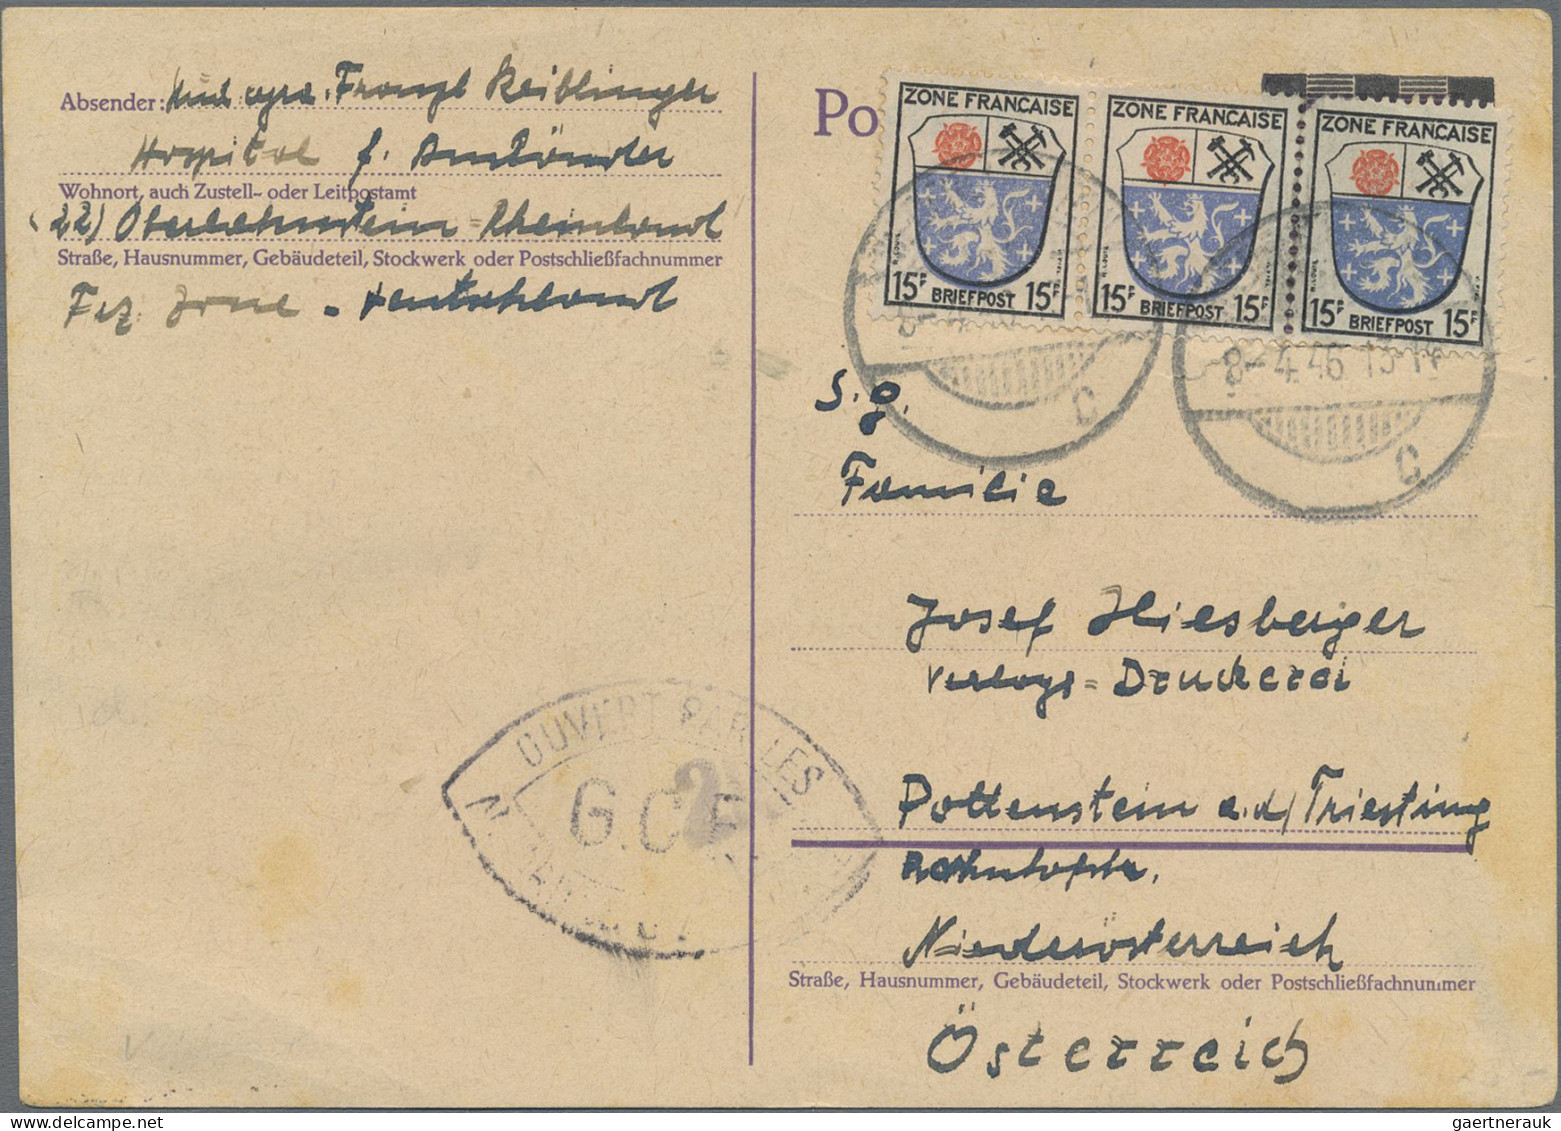 Absender: Franzl Reiblinger
Hospital f. Ausländer
Wohnort, auch Zustell- oder Leitpostamt
(22) Oberlahnstein = Rheinland
Straße, Hausnummer, Gebäudeteil, Stockwerk oder Postschließfachnummer
Frz. Zone - Deutschland
Po
ZONE FRANCAISE
15F BRIEFPOST 15F
ZONE FRANCAISE
15F BRIEFPOST 15F
ZONE FRANCAISE
15F BRIEFPOST 15F
8-
C
8-4.46
C
S. g.
Familie
Josef Hiesberger
Verlags = Druckerei
Pottenstein a.d/Triesting
Niederösterreich
Straße, Hausnummer, Gebäudeteil, Stockwerk oder Postschließfachnummer
Österreich
OUVERT PAR LES
G.C.
gaertnerauk